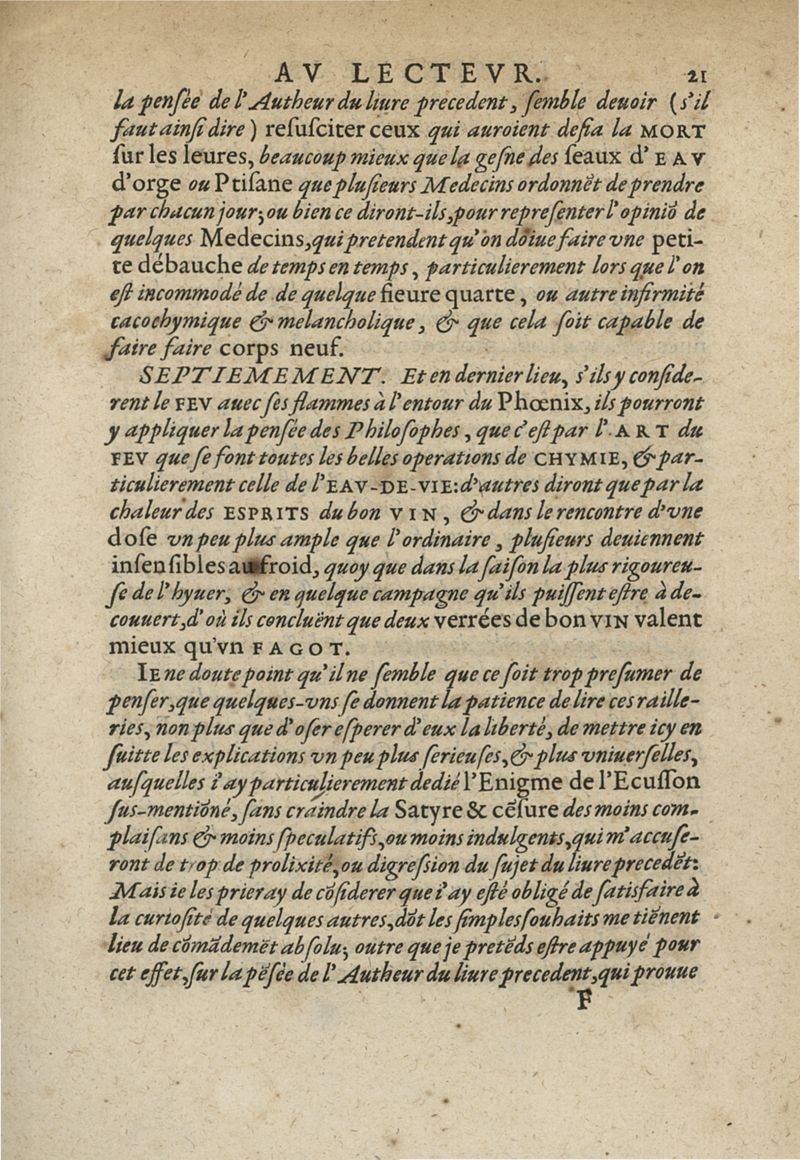 AV LECTEVR. 21
la penſée de l'Autheur du liure precedent, ſemble deuoir (s'il
faut ainſi dire) reſuſciter ceux qui auroient deſia la MORT
ſur les leures, beaucoup mieux que la geſne des ſeaux d'EAV
d'orge ou Ptiſane que pluſieurs Medecins ordonnẽt de prendre
par chacun jour; ou bien ce diront-ils, pour repreſenter l'opiniõ de
quelques Medecins, qui pretendent qu'on doiue faire vne peti-
te débauche de temps en temps, particulierement lors que l'on
eſt incommodé de de quelque fieure quarte, ou autre infirmité
cacochymique & melancholique, & que cela ſoit capable de
faire faire corps neuf.
SEPTIEMEMENT. Et en dernier lieu, s'ils y conſide-
rent le FEV auec ſes flammes à l'entour du Phœnix, ils pourront
y appliquer la penſée des Philoſophes, que c'eſt par l'ART du
FEV que ſe font toutes les belles operations de CHYMIE, & par-
ticulierement celle de l'EAV-DE-VIE: d'autres diront que par la
chaleur des ESPRITS du bon VIN, & dans le rencontre d'vne
doſe vn peu plus ample que l'ordinaire, pluſieurs deuiennent
inſenſibles au froid, quoy que dans la ſaiſon la plus rigoureu-
ſe de l'hyuer, & en quelque campagne qu'ils puiſſent eſtre à de-
couuert, d'où ils concluënt que deux verrées de bon VIN valent
mieux qu'vn FAGOT.
IE ne doute point qu'il ne ſemble que ce ſoit trop preſumer de
penſer, que quelques-vns ſe donnent la patience de lire ces raille-
ries, non plus que d'oſer eſperer d'eux la liberté, de mettre icy en
ſuitte les explications vn peu plus ſerieuſes, & plus vniuerſelles,
auſquelles i'ay particulierement dedié l'Enigme de l'Ecuſſon
ſus-mentiõné, ſans craindre la Satyre & cẽſure des moins com-
plaiſans & moins ſpeculatifs, ou moins indulgents, qui m'accuſe-
ront de trop de prolixité, ou digreſsion du ſujet du liure precedẽt:
Mais ie les prieray de cõſiderer que i'ay eſté obligé de ſatisfaire à
la curioſité de quelques autres, dõt les ſimples ſouhaits me tiẽnent
lieu de cõmãdemẽt abſolu; outre que je pretẽds eſtre appuyé pour
cet effet, ſur la pẽſée de l'Autheur du liure precedent, qui prouue
F